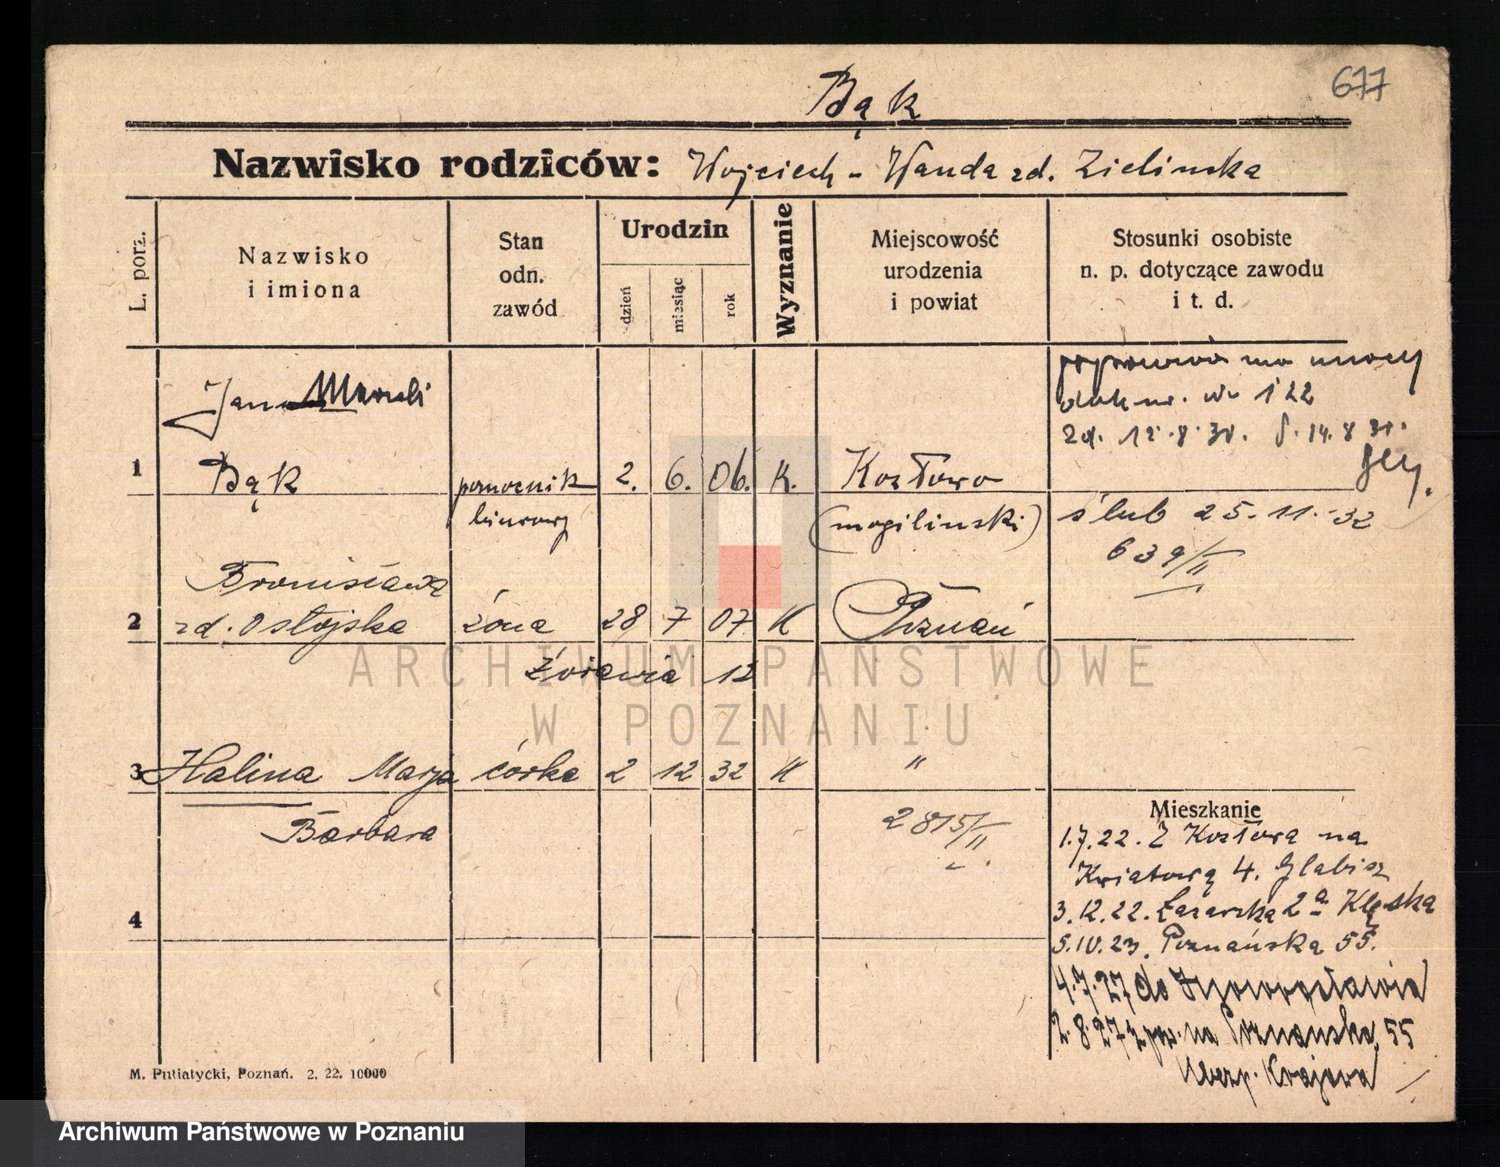 677
Bąk
Nazwisko rodziców: Wojciech - Wanda zd. Zielinska
L. porz.
Nazwisko
i imiona
Stan
odn.
zawód
Urodzin
dzień
miesiąc
rok
Wyznanie
Miejscowość
urodzenia
i powiat
Stosunki osobiste
n. p. dotyczące zawodu
i t. d.
Jan
na mocy
zd. 12.8.30. 14.8
1 Bąk pomocnik 2. 6. 06. K. Kozłowo
biurowy (mogilinski) ślub 25.11.-32
639/II
Bronisława
2 zd. Ostojska żona 28 7 07 K Poznań
Żórawia 12
3 Halina Marja córka 2 12 32 K "
Barbara 2815/II
4
Mieszkanie
1.7.22. Z Kozłowa na
Kwiatową 4. Glabisz
3.12.22. Łazarska 2a Klęska
5.IV.23. Poznańska 55.
4.7.27 do Inowrocławia
2.8.27 z na Poznańska 55
Krajowa
M. Putiatycki, Poznań. 2. 22. 10000
ARCHIWUM PAŃSTWOWE
W POZNANIU
Archiwum Państwowe w Poznaniu